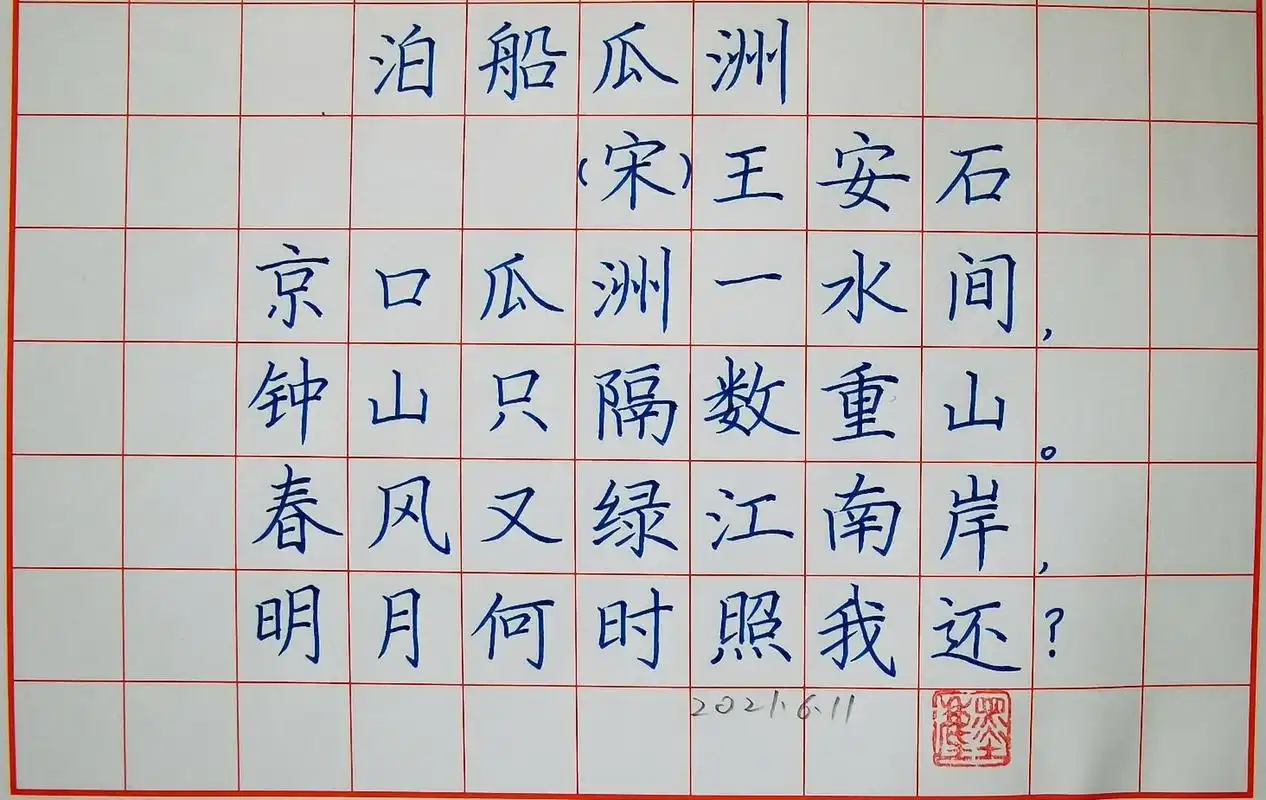 泊船瓜洲
(宋)王安石
京口瓜洲一水间,
钟山只隔数重山。
春风又绿江南岸,
明月何时照我还?
2021.6.11